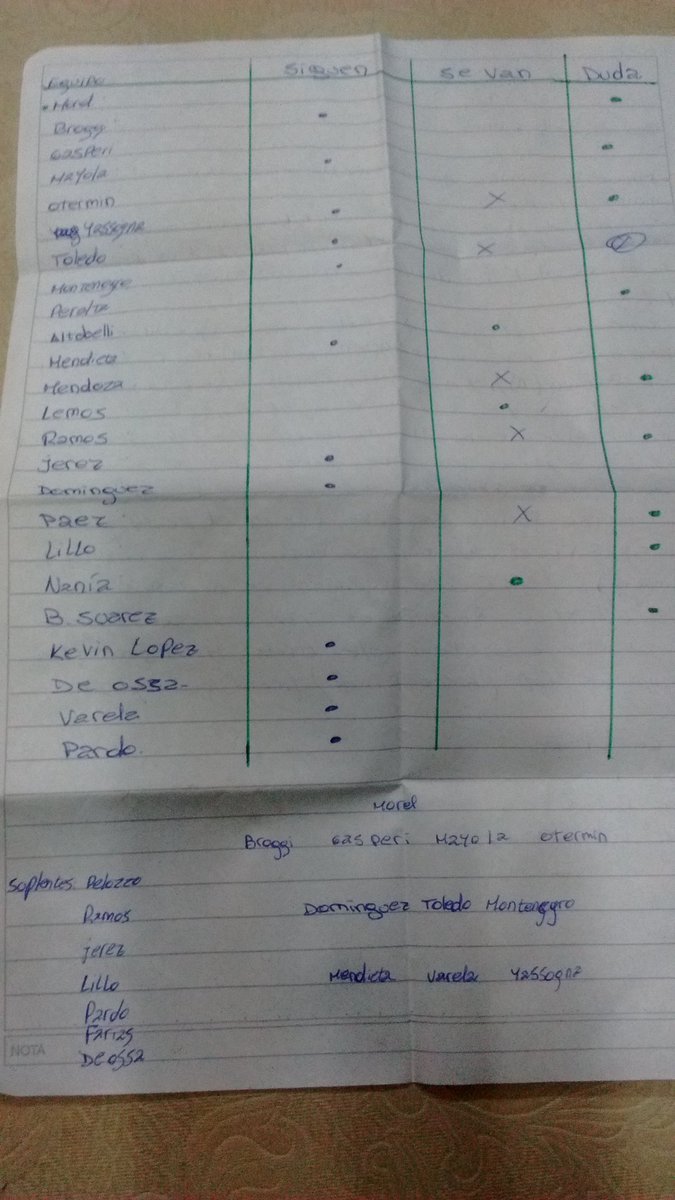 Equipo Siguen Se Van Duda
Morel
Braggi
Gasperi
Mayola
otermin X
Yassogna
Toledo X
Montenegro
Peralta
Altobelli
Mendieta
Mendoza X
Lemos
Ramos X
Jerez
Dominguez
Paez X
Lillo
Nanía
B Suarez
Kevin Lopez
De ossa
Varela
Pardo.
Morel
Braggi Gasperi Mayola otermin
Suplentes: Pelozzo
Ramos Dominguez Toledo Montenegro
Jerez
Lillo Mendieta Varela Yassogna
Pardo
Farias
De ossa
NOTA